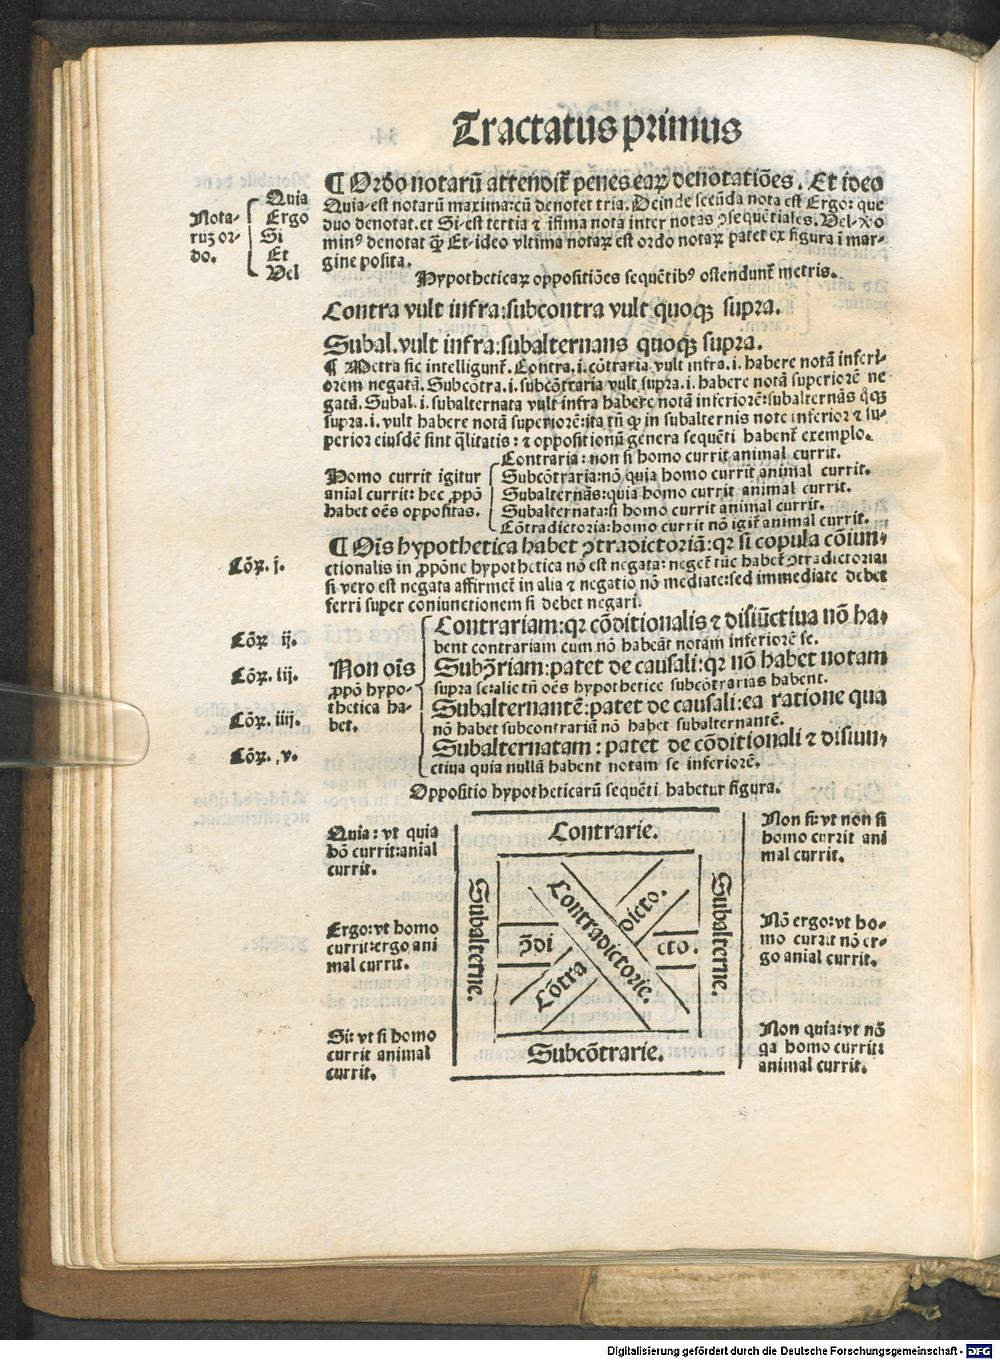 Tractatus primus
¶ Ordo notarū attenditꝛ penes eaꝝ denotatiōes. Et ideo
Quia-est notarū maxima: cū denotet tria. Deinde secūda nota est Ergo: que
duo denotat. et Si-est tertia ⁊ īfima nota inter notas ꝯsequētiales. Vel-vo
minꝰ denotat ꝙ Et-ideo vltima notaꝝ est ordo notaꝝ patet ex figura ī mar-
gine posita.
Nota-
ruꝫ or-
do.
Quia
Ergo
Si
Et
Vel
Hypotheticaꝝ oppositiōes sequētibꝰ ostendunt̄ metris.
Contra vult infra: subcontra vult quoqꝫ supra.
Subal. vult infra: subalternans quoqꝫ supra.
¶ Metra sic intelligunt̄. Contra. i. cōtraria vult infra. i. habere notā inferi-
orem negatā. Subcōtra. i. subcōtraria vult supra. i. habere notā superiorē ne
gatā. Subal. i. subalternata vult infra habere notā inferiorē: subalternās qͦqꝫ
supra. i. vult habere notā superiorē: ita tn̄ ꝙ in subalternis note inferior ⁊ su-
perior eiusdē sint q̄litatis: ⁊ oppositionū genera sequēti habent̄ exemplo.
Homo currit igitur
anīal currit: hec ꝓpō
habet oēs oppositas.
Contraria: non si homo currit animal currit.
Subcōtraria: nō quia homo currit animal currit.
Subalternās: quia homo currit animal currit.
Subalternata: si homo currit animal currit.
Cōtradictoria: homo currit nō igit̄ animal currit.
¶ Oīs hypothetica habet ꝯtradictoriā: qꝛ si copula cōiun-
ctionalis in ꝓpōne hypothetica nō est negata: neget̄ tūc habet̄ ꝯtradictoria:
si vero est negata affirmet̄ in alia ⁊ negatio nō mediate: sed immediate debet
ferri super coniunctionem si debet negari.
Cōꝝ. j.
Cōꝝ. ij.
Cōꝝ. iij.
Cōꝝ. iiij.
Cōꝝ. v.
Non oīs
ꝓpō hypo-
thetica ha-
bet.
Contrariam: qꝛ cōditionalis ⁊ disiūctiua nō ha-
bent contrariam cum nō habeāt notam inferiorē se.
Subꝯriam: patet de causali: qꝛ nō habet notam
supra se: alie tn̄ oēs hypothetice subcōtrarias habent.
Subalternantē: patet de causali: ea ratione qua
nō habet subcontrariā nō habet subalternantē.
Subalternatam: patet de cōditionali ⁊ disiun-
ctiua quia nullā habent notam se inferiorē.
Oppositio hypotheticarū sequēti habetur figura.
Quia: vt quia
hō currit: anīal
currit.
Ergo: vt homo
currit: ergo ani
mal currit.
Si: vt si homo
currit animal
currit.
Contrarie.
Subalterne.
Contradictorie.
dicto.
ꝯ̄di
cto.
Cōtra
Subalterne.
Subcōtrarie.
Non si: vt non si
homo currit ani
mal currit.
Nō ergo: vt ho-
mo currit nō er-
go anīal currit.
Non quia: vt nō
qa homo currit:
animal currit.
Digitalisierung gefördert durch die Deutsche Forschungsgemeinschaft - DFG